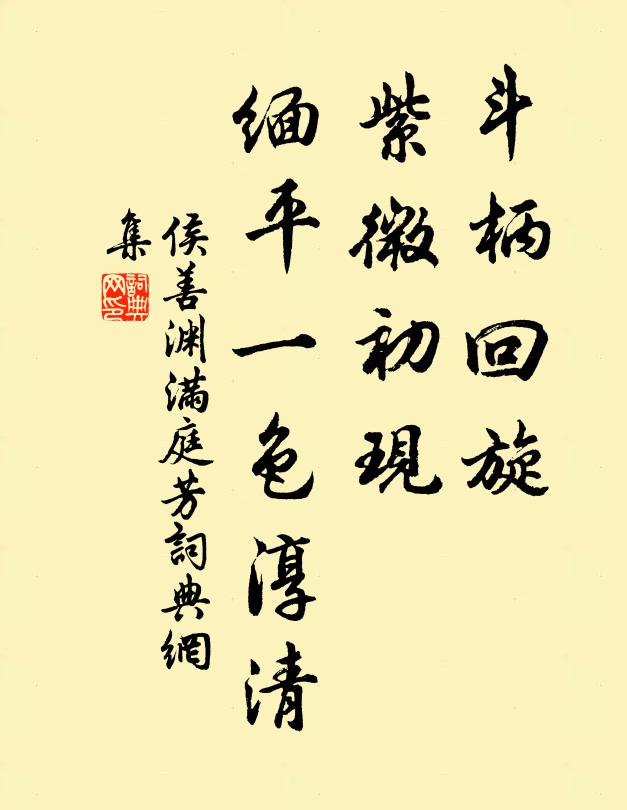 斗柄回旋
紫微初現
缅平一色淳清
侯善渊满庭芳詞典網
集
詞典
网印